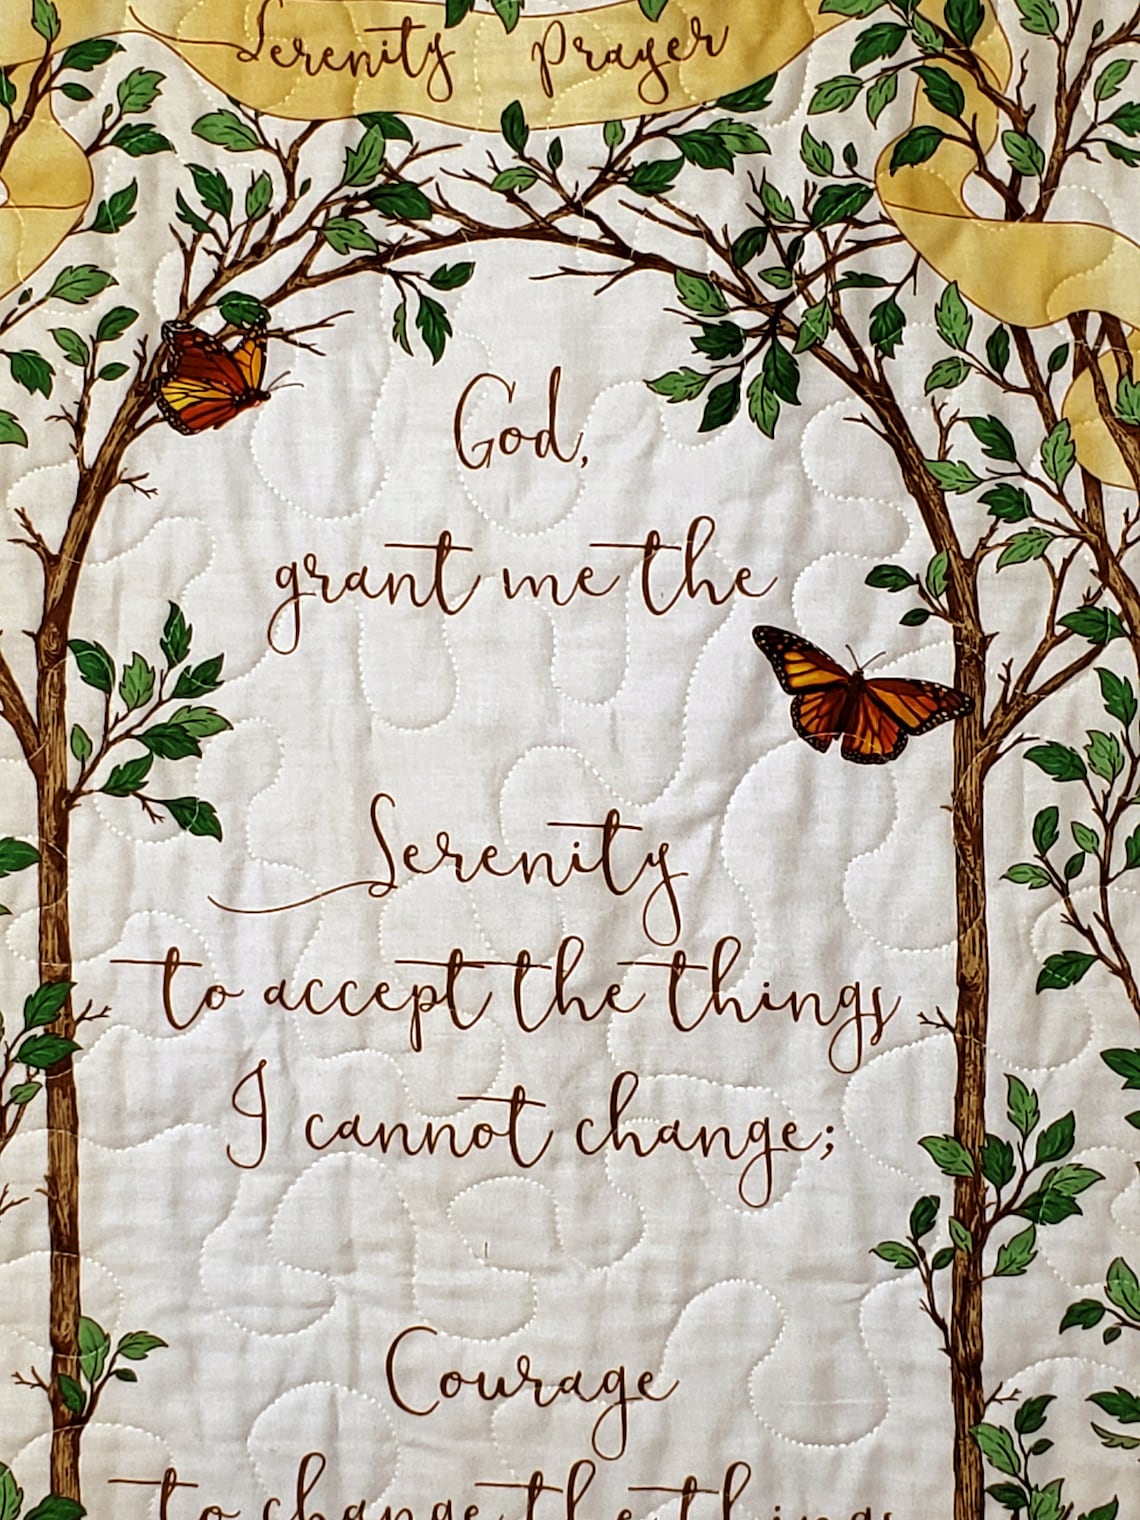 Serenity Prayer
God,
grant me the
Serenity
to accept the things
I cannot change;
Courage
to change the things